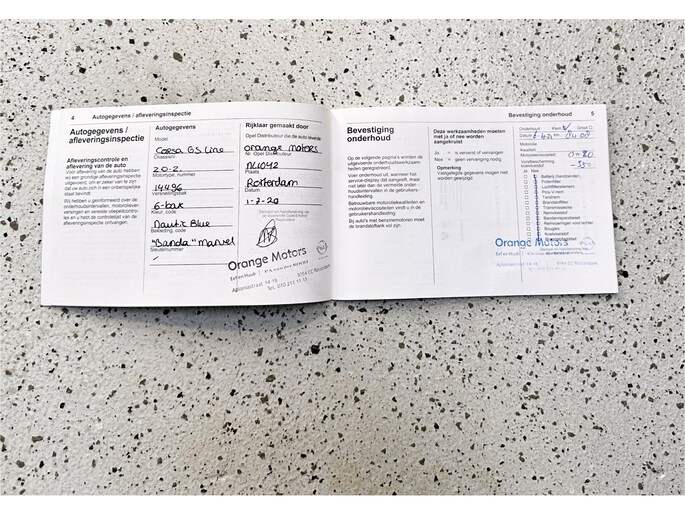 4 Autogegevens / afleveringsinspectie
Autogegevens /
afleveringsinspectie
Afleveringscontrole en
aflevering van de auto
Voor aflevering van de auto hebben
wij een grondige afleveringsinspectie
uitgevoerd, om er zeker van te zijn
dat uw auto zich in een onberispelijke
staat bevindt.
Wij hebben u geïnformeerd over de
onderhoudsbeurten/motorolieverversingen
en vereiste vloeistofcontroles
en u hebt de controlelijst van de
afleveringsinspectie ontvangen.
Autogegevens
Model
Corsa GS Line
Chassisnr.
20.2.
Motortype, nummer
14496
Versnellingsbak
6-bak
Kleur, code
Nautic Blue
Bekleding, code
"Banda" Marvel
Sleutelnummer
Rijklaar gemaakt door
Opel Distributeur die de auto leverde
Orange Motors
Nr. Opel Distributeur
NL4042
Plaats
Rotterdam
Datum
1-7-20
Orange Motors
Apolloniastraat 14-16
3084 CC Rotterdam
Tel. 010 211 11 11
Bevestiging onderhoud 5
Bevestiging
onderhoud
Op de volgende pagina's worden de
uitgevoerde onderhoudswerkzaamheden
geregistreerd.
Voer onderhoud uit, wanneer het
service-display dat aangeeft, maar
niet later dan de vermelde onderhoudsintervallen
in de gebruikershandleiding.
Betrouwbare motoroliekwaliteiten en
motorolieviscositeiten vindt u in de
gebruikershandleiding.
Bij auto's met benzinemotoren moet
de brandstoftank vol zijn.
Deze werkzaamheden moeten
met ja of nee worden
aangekruist
Ja = is ververst of vervangen
Nee = geen vervanging nodig
Opmerking
Vastgelegde gegevens mogen niet
worden gewijzigd.
Onderhoud Klein Groot
Datum
Motorolie
Kwaliteit
Motorolieviscositeit
Vorstbescherming
Ja Nee
Batterij (handzender)
Pollenfilter
Luchtfilterelement
Poly V-riem
Tandriem
Brandstoffilter
Transmissieolie
Remvloeistof
Bougies
Koelvloeistof
Orange Motors